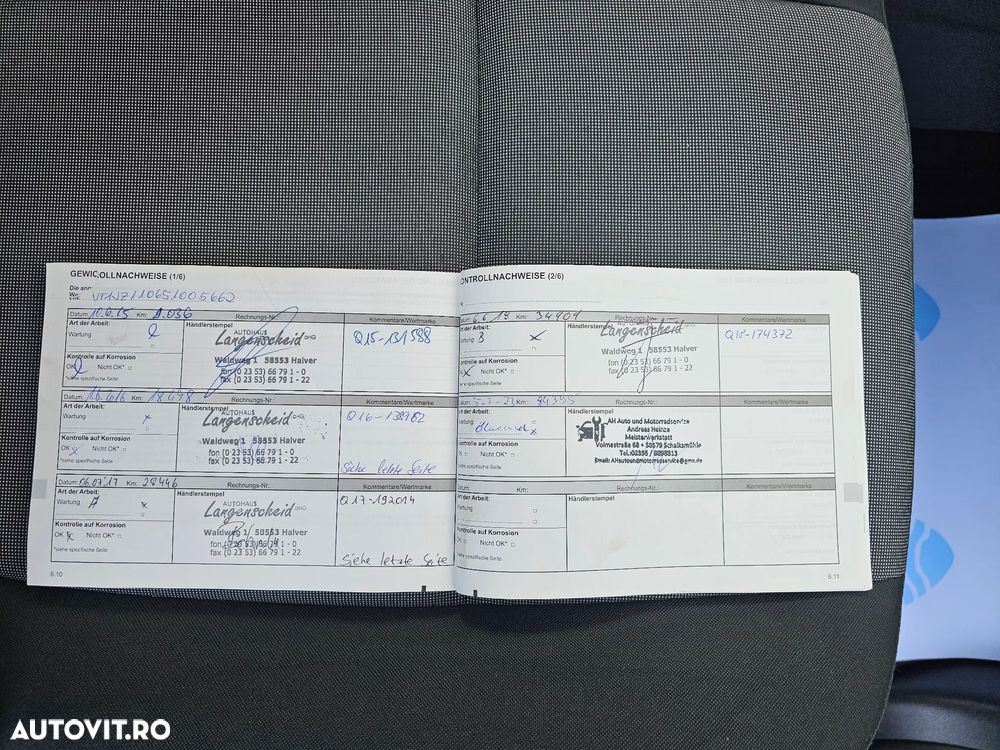 GEWIC
OLLNACHWEISE (1/6)
Datum: 10.6.15 Km: 9.036 Rechnungs-Nr.: Kommentare/Wertmarke
Art der Arbeit:
Wartung
Kontrolle auf Korrosion
OK Nicht OK*
*siehe spezifische Seite
Händlerstempel
AUTOHAUS
Langenscheid OHG
Waldweg 1 58553 Halver
fon (0 23 53) 66 79 1 - 0
fax (0 23 53) 66 79 1 - 22
Q15-131588
Datum: 10.6.16 Km: 18498 Rechnungs-Nr.: Kommentare/Wertmarke
Art der Arbeit:
Wartung x
Kontrolle auf Korrosion
OK x Nicht OK*
*siehe spezifische Seite
Händlerstempel
AUTOHAUS
Langenscheid OHG
Waldweg 1 58553 Halver
fon (0 23 53) 66 79 1 - 0
fax (0 23 53) 66 79 1 - 22
Siehe letzte Seite
Datum: 06.07.17 Km: 28446 Rechnungs-Nr.: Kommentare/Wertmarke
Art der Arbeit:
Wartung A x
Kontrolle auf Korrosion
OK x Nicht OK*
*siehe spezifische Seite
Händlerstempel
AUTOHAUS
Langenscheid OHG
Waldweg 1 58553 Halver
fon (0 23 53) 66 79 1 - 0
fax (0 23 53) 66 79 1 - 22
Q17-192014
Siehe letzte Seite
6.10
ONTROLLNACHWEISE (2/6)
6.6.18 Km: 34901 Rechnungs-Nr.: Kommentare/Wertmarke
Art der Arbeit:
Wartung B x
Kontrolle auf Korrosion
OK x Nicht OK*
*siehe spezifische Seite
Händlerstempel
Langenscheid
Waldweg 1 58553 Halver
fon (0 23 53) 66 79 1 - 0
fax (0 23 53) 66 79 1 - 22
Q18-174372
Km: Rechnungs-Nr.: Kommentare/Wertmarke
Art der Arbeit:
Wartung
Ölwechsel x
Kontrolle auf Korrosion
OK Nicht OK*
*siehe spezifische Seite
Händlerstempel
AH Auto und Motorradservice
Andreas Heinze
Meisterwerkstatt
Volmestraße 68 • 58579 Schalksmühle
Tel.:02355 / 5098813
Email: AHautoundmotorradservice@gmx.de
Datum: Km: Rechnungs-Nr.: Kommentare/Wertmarke
Art der Arbeit:
Wartung
Kontrolle auf Korrosion
OK Nicht OK*
*siehe spezifische Seite
Händlerstempel
6.11
AUTOVIT.RO